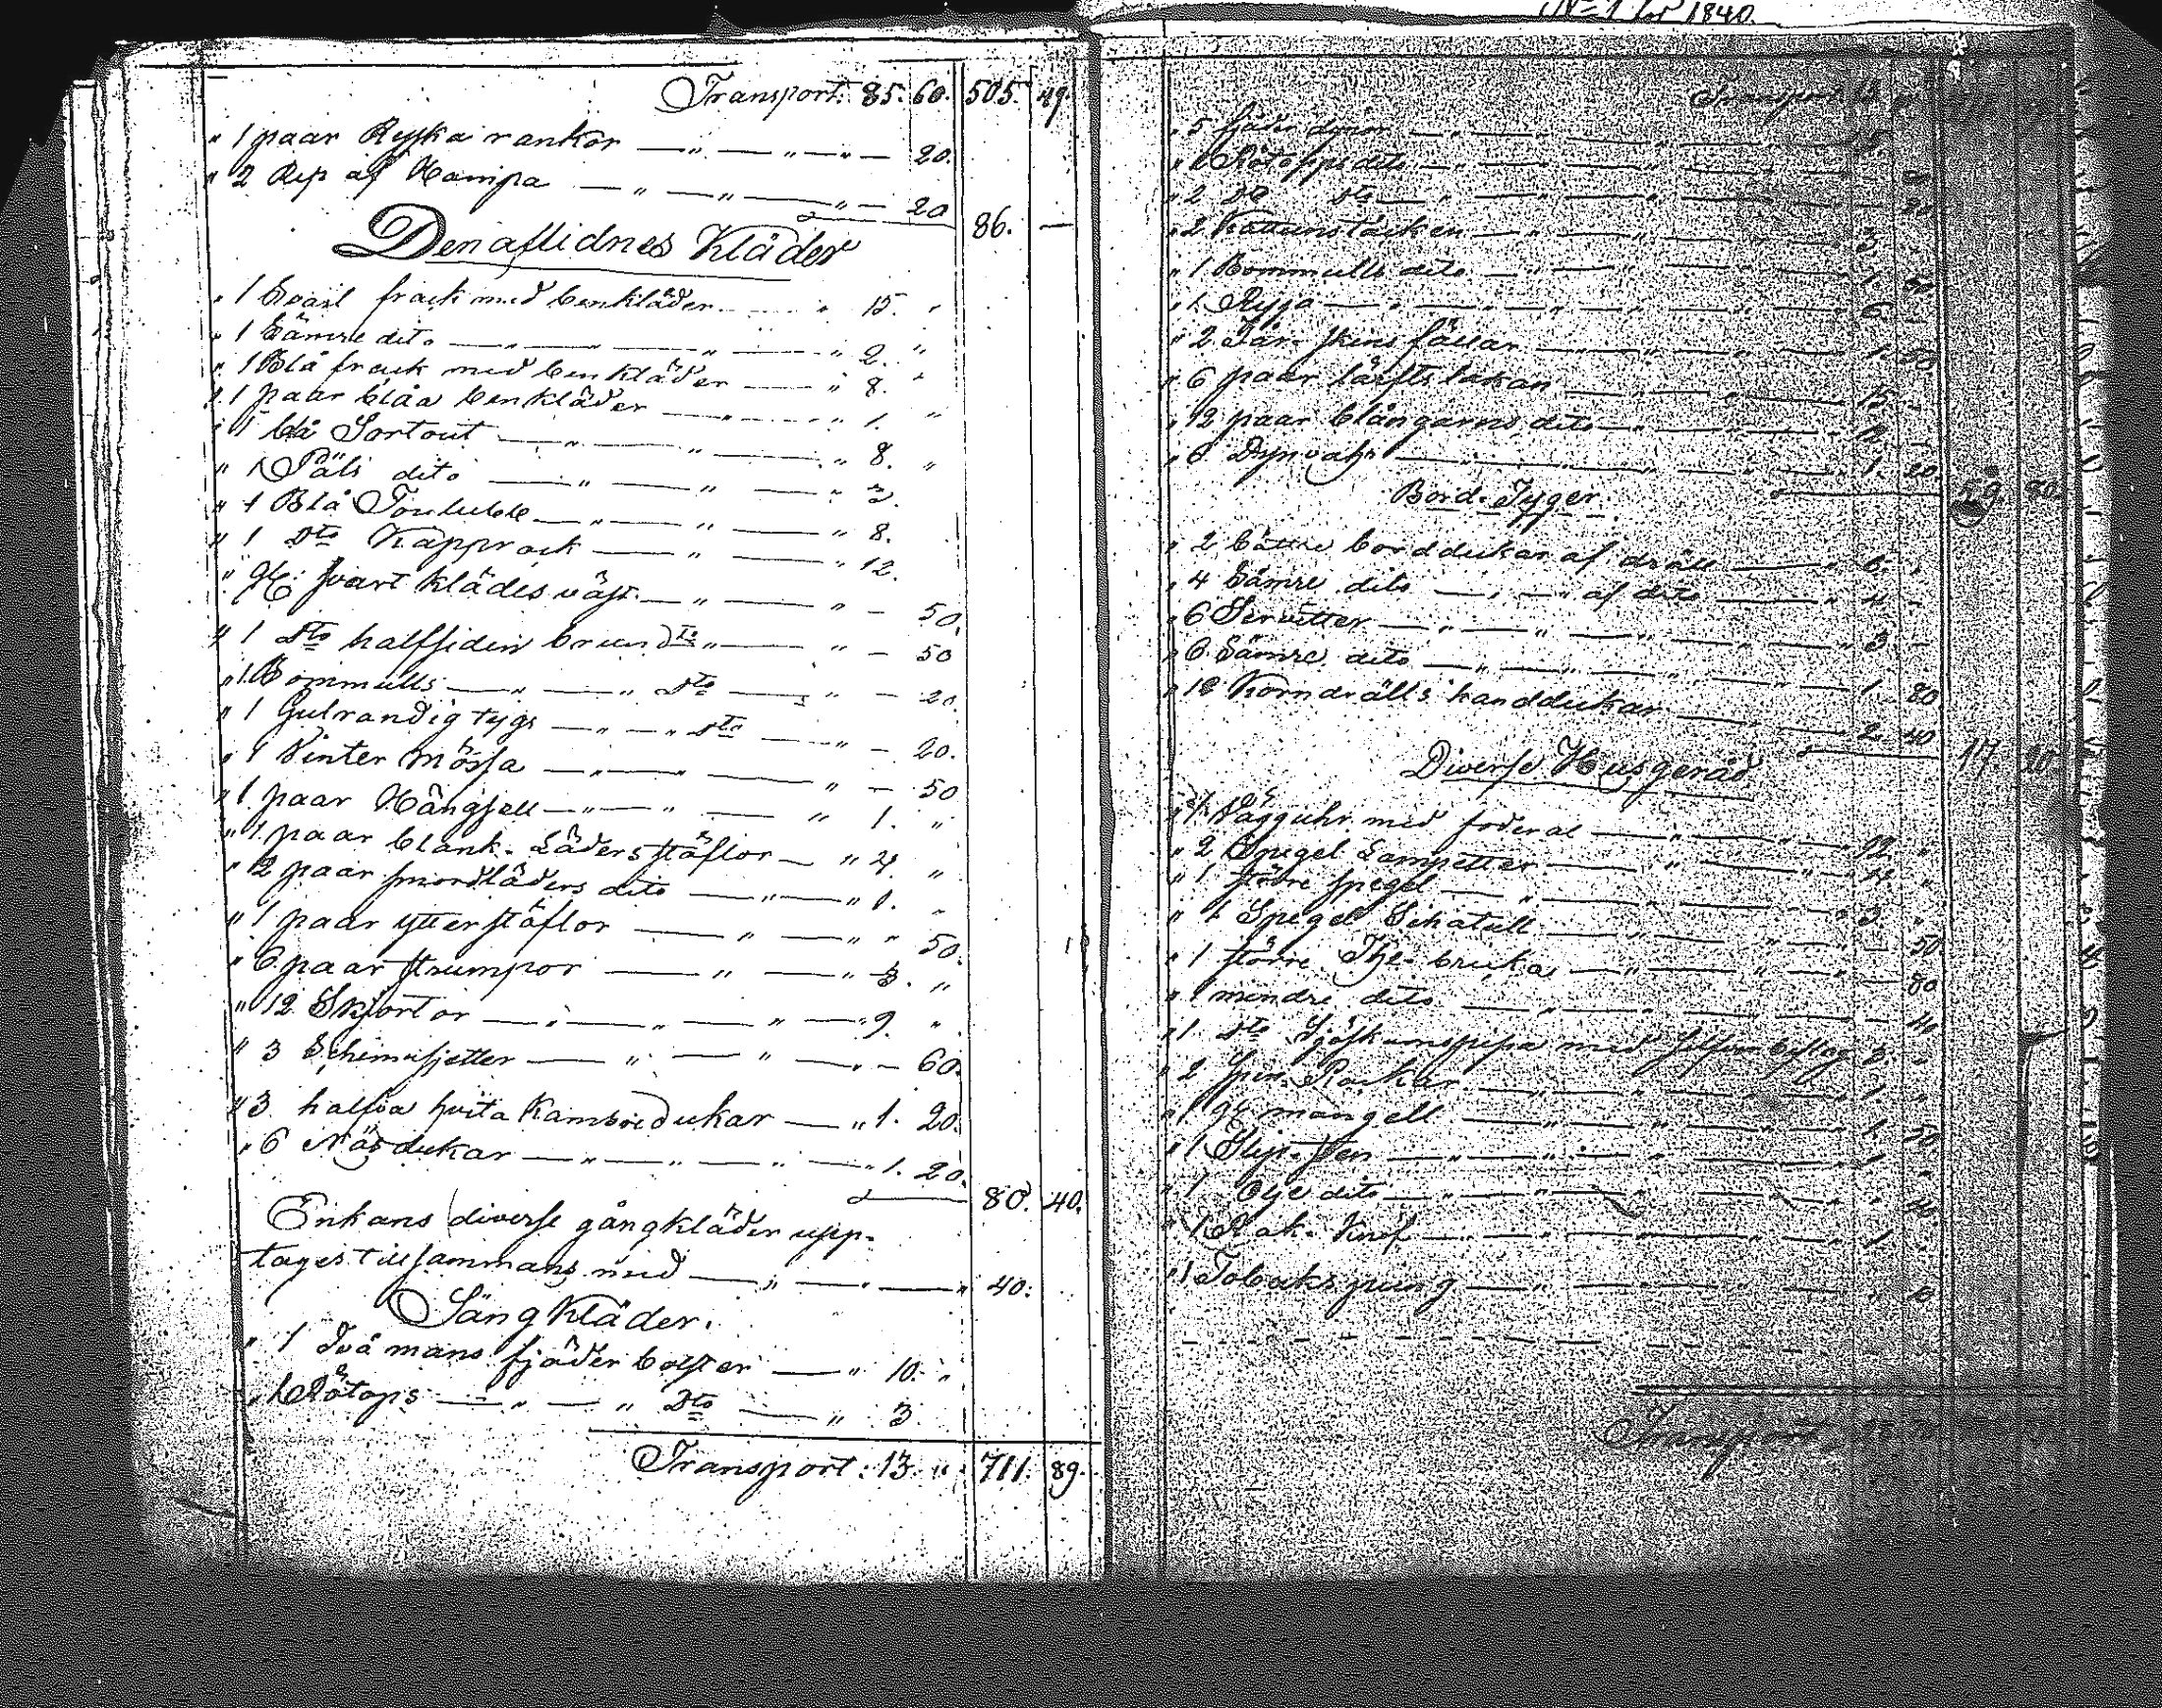 No 1 1840.
Transport: 85. 60. 505. 49.
" 1 paar Ryska rankor — " — " — " — 20.
" 2 Rep af Hampa — " — " — " — 20 86. —
Den aflidnes Kläder
" 1 Svart frack med benkläder " 15. "
" 1 Sämre dito — " — " — " 2. "
" 1 Blå frack med benkläder — " 8. "
" 1 paar blåa benkläder — " — " 1. "
" 1 blå Sortout — " — " — " 8. "
" 1 Päls dito — " — " — " 2.
" 1 Blå — " — " — " 8.
" 1 Dto Kapprock — " — " 12.
" svart klädes väst — " — " — 50.
" 1 Dto halfsiden Dto " — " — 50
" 1 Bommulls — " — " Dto — " — 20.
" 1 Gulrandig tygs — " — " Dto — " — 20.
" 1 Vinter Mössa — " — " — 50
" 1 paar Hängsell — " — " — " 1. "
" 1 paar blank-Läders stöflor — " 4. "
" 2 paar smordläders dito — " — " 1. "
" 1 paar ytterstöflor — " — " " 50.
" 6 paar strumpor — " — " 3. "
" 12 Skjortor — " — " — " — " 9. "
" 3 Schemisjetter — " — " — " — 60.
" 3 halfva hvita Kambridukar — " 1. 20.
" 6 Näsdukar — " — " — " — " 1. 20. 80. 40.
Enkans diverse gångkläder upp-
tages tillsammans med — " — " — " 40.
Sängkläder.
" 1 två mans fjäder bolster — " 10. "
" 1 Dto — " 3.
Transport: 13. " 711. 89.
Transport 13
" 5 fjäder dynor — " — " — 15.
" 2 Do Dto — " — 20
" 2 Kattuns täcken — " — " — 3. —
" 1 Bommulls dito — " — " — 1. 50.
" 1 Rya — " — " — " — 6. —
" 2 Får-skins fällar — " — " — 1. 50
" 6 paar lärfts lakan — " — " — 15 —
" 12 paar blångarns dito — " — " — 12 —
" 6 Dynvahr — " — " — 1. 20. 59. 80.
Bord-Tyger
" 2 bättre borddukar af dräll — " 6. "
" 4 Sämre dito — " — " af dito — " 4 —
" 6 Servetter — " — " — " 3. —
" 6 Sämre dito — " — " — 1. 80
" 12 Korndrälls handdukar — 2. 40 17. 20.
Diverse Husgeråd
" 1 Vägguhr med foderal — " — " 12 "
" 2 Spegel Lampetter — " — " 2. "
" 1 större spegel — " — " 3. "
" 1 Spegel Schatull — " — " — 50
" 1 större The-bricka — " — " — 80
" 1 mindre dito — " — " — 40
" 1 Dto Sjöskumspipa med silfverbeslag 6. "
" 2 spin-Rockar — " — " — 1. "
" 1 mangell — " — " — 1. 50
" 1 Slip-sten — " — " — 1 "
" 1 Olje dito — " — " — " 40
" 1 Rak-knif — " — " — 1 "
" 1 Tobakspung — " — " — " 6
Transport